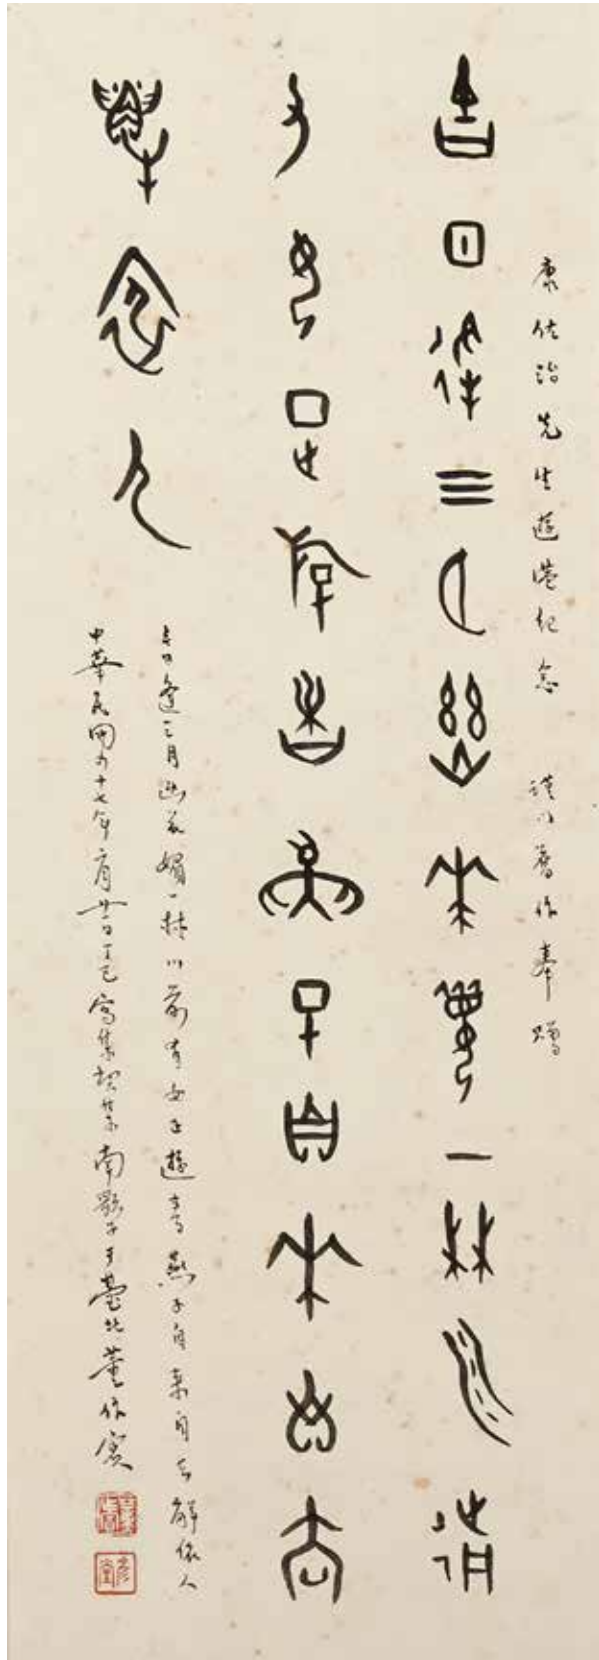 康佐治先生遊港紀念 謹以舊作奉贈
吉日逢三月幽花媚一林川前
有女正遊春燕子自來自去
解依人
吉日逢三月幽花媚一林川前有女正遊春燕子自來自去解依人
中華民國四十七年 月 日丁巳寫集契集南歌子于臺北董作賓